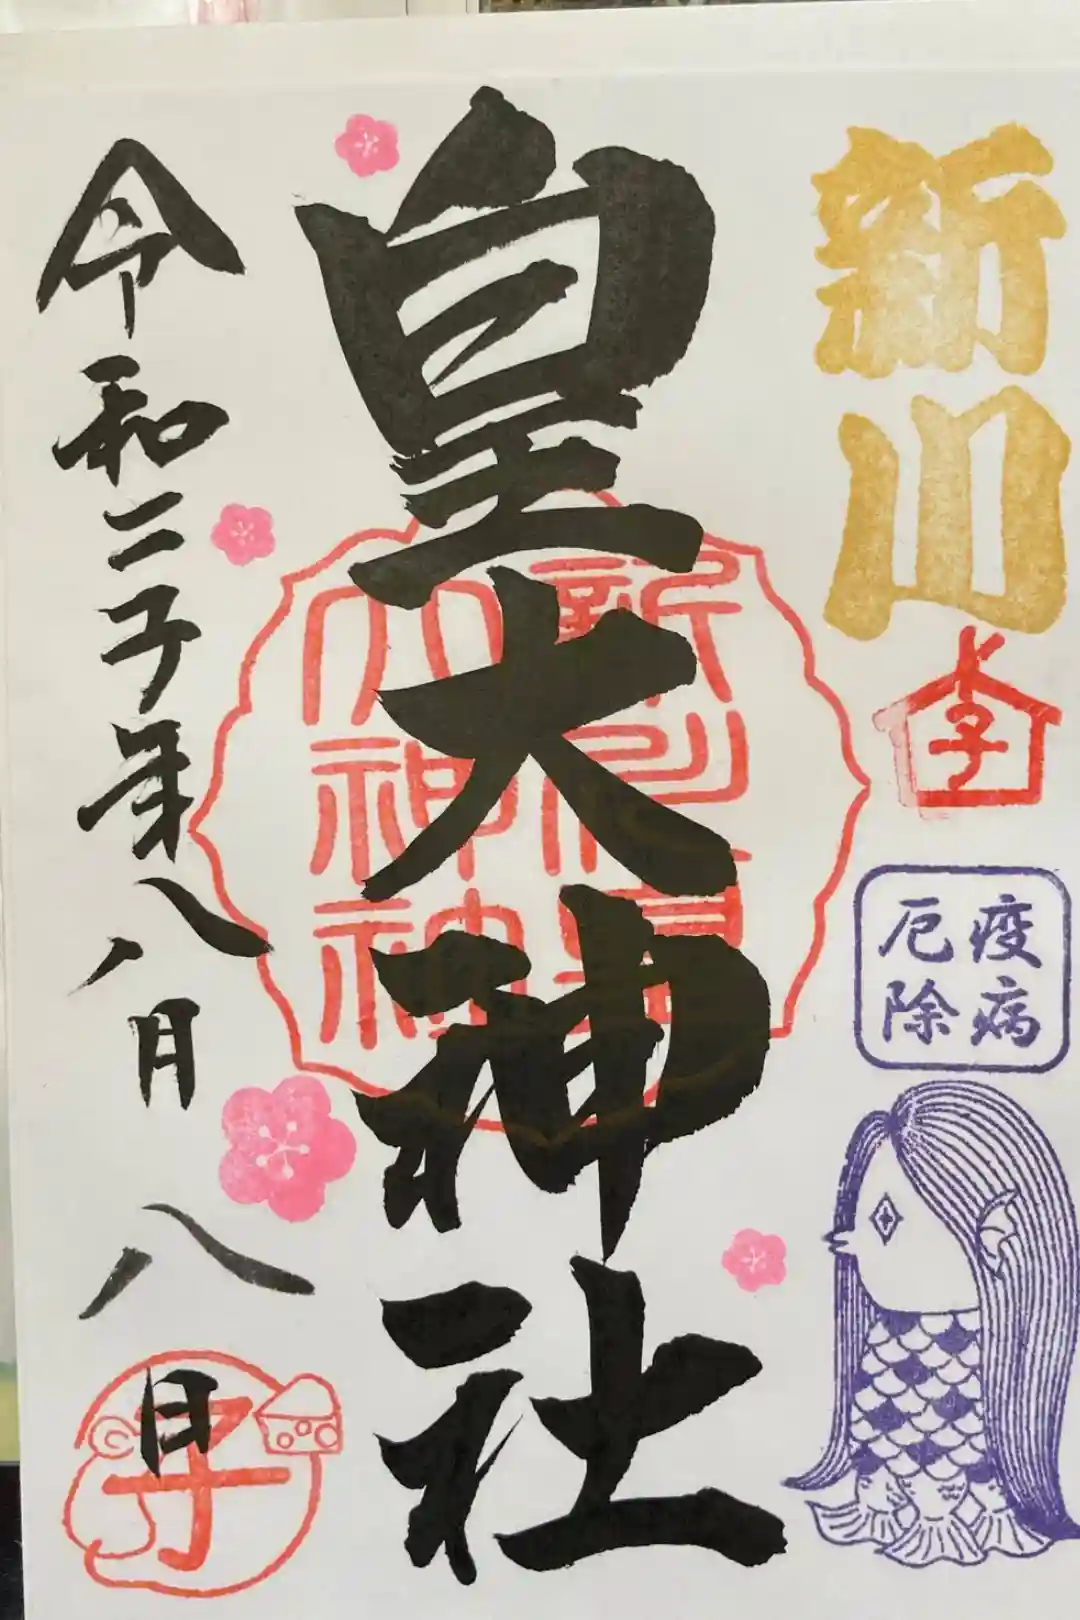 新川
子
疫病
厄除
皇大神社
新川
皇
大神
神
令和二子年八月八日
子